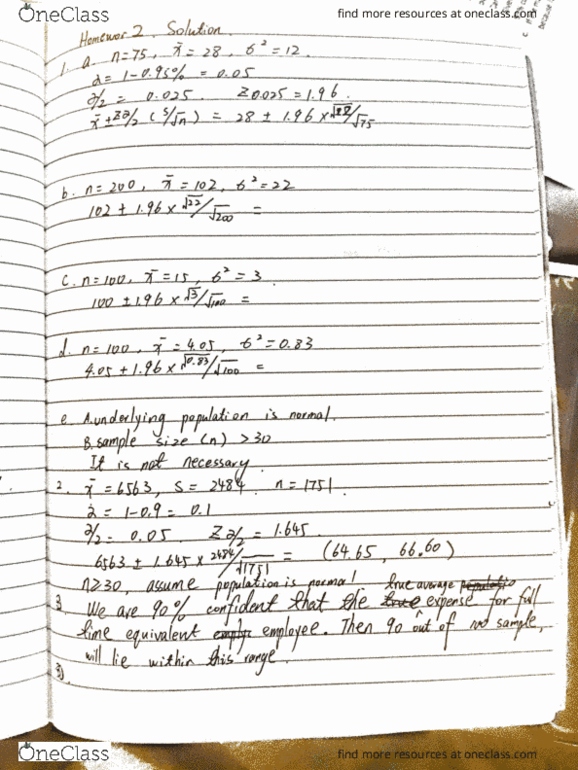 OneClass
find more resources at oneclass.com
Homewor 2, Solution
1. a. n=75, x̄ = 28, б²=12.
2 = 1-0.95% = 0.05
2/2 = 0.025. Z0.025 = 1.96.
x̄ ± Z2/2 (S/√n) = 28 ± 1.96 × /√75
b. n=200, x̄ = 102, б²=22
102 ± 1.96 × √22/√200 =
c. n=100, x̄=15, б²=3
100 ±1.96 × √3/√100 =
d. n=100, x̄ = 4.05, б²=0.83
4.05 + 1.96 × √0.83/√100 =
e. A.underlying population is normal.
B.sample size (n) >30
It is not necessary.
2. x̄ = 6563, S = 2484. n = 1751.
2 = 1-0.9 = 0.1
2/2 = 0.05. Z2/2 = 1.645.
6563 ± 1.645 × 2484/√1751 = (64.65, 66.60)
n≥30, assume population is normal true average
3. We are 90% confident that the true expense for full
time equivalent employee. Then 90 out of sample,
will lie within this range.
3).
OneClass
find more resources at oneclass.com